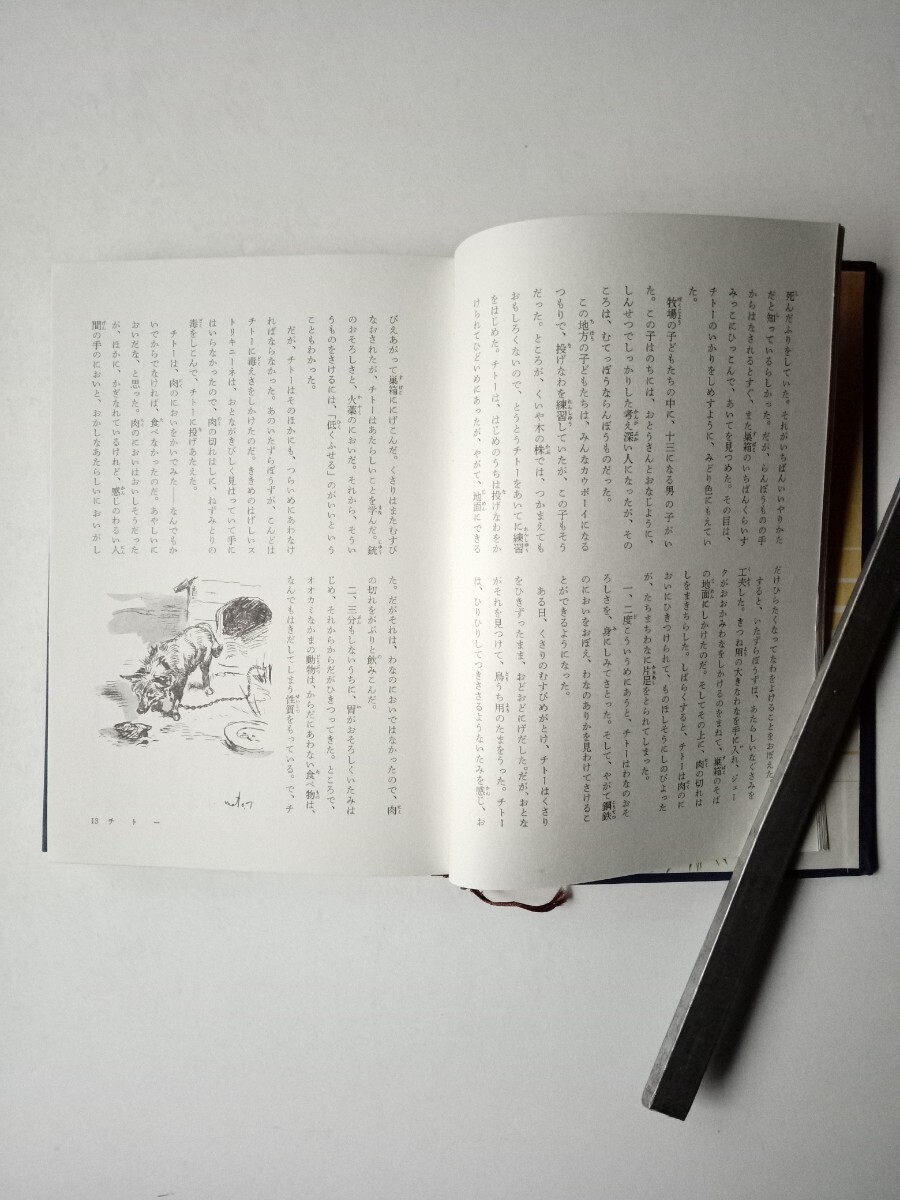 死んだふりをしていた。それがいちばんいいやりかた
だと知っているらしかった。だが、らんぼうものの手
からはなされるとすぐ、また巣箱のいちばんくらいす
みっこにひっこんで、あいてを見つめた。その目は、
チトーのいかりをしめすように、みどり色にもえてい
た。
牧場の子どもたちの中に、十三になる男の子がい
た。この子はのちには、おとうさんとおなじように、
しんせつでしっかりした考え深い人になったが、その
ころは、むてっぽうならんぼうものだった。
この地方の子どもたちは、みんなカウボーイになる
つもりで、投げなわを練習していたが、この子もそう
だった。ところが、くいや木の株では、つかまえても
おもしろくないので、とうとうチトーをあいてに練習
をはじめた。チトーは、はじめのうちは投げなわをか
けられてひどいめにあったが、やがて、地面にできる
だけひらたくなってなわをよけることをおぼえた。
すると、いたずらぼうずは、あたらしいなぐさみを
工夫した。きつね用の大きなわなを手に入れ、ジェー
クがおおかみわなをしかけるのをまねて、巣箱のそば
の地面にしかけたのだ。そしてその上に、肉の切れは
しをまきちらした。しばらくすると、チトーは肉のに
おいにひきつけられて、ものほしそうにしのびよった
が、たちまちわなに片足をとられてしまった。
一、二度こういうめにあうと、チトーはわなのおそ
ろしさを、身にしみてさとった。そして、やがて鋼鉄
のにおいをおぼえ、わなのありかを見わけてさけると
とができるようになった。
ある日、くさりのむすびめがとけ、チトーはくさり
をひきずったまま、おどおどにげだした。だが、おとな
がそれを見つけて、鳥うち用のたまをうった。チトー
は、ひりひりしてつきささるようないたみを感じ、お
びえあがって巣箱ににげこんだ。くさりはまたむすび
なおされたが、チトーはあたらしいことを学んだ。銃
のおそろしさと、火薬のにおいだ。それから、そうい
うものをさけるには、「低くふせる」のがいいという
こともわかった。
だが、チトーはそのほかにも、つらいめにあわなけ
ればならなかった。あのいたずらぼうずが、こんどは
チトーに毒えさをしかけたのだ。ききめのはげしいス
トリキニーネは、おとながきびしく見はっていて手に
はいらなかったので、肉の切れはしに、ねずみとりの
毒をしこんで、チトーに投げあたえた。
チトーは、肉のにおいをかいでみた――なんでもか
いでからでなければ、食べなかったのだ。あやしいに
おいだな、と思った。肉のにおいはおいしそうだった
が、ほかに、かぎなれているけれど、感じのわるい人
間の手のにおいと、おかしなあたらしいにおいがし
た。だがそれは、わなのにおいではなかったので、肉
の切れをがぶりと飲みこんだ。
二、三分もしないうちに、胃がおそろしくいたみは
じめ、それからからだがひきつってきた。ところで、
オオカミなかまの動物は、からだにあわない食べ物は、
なんでもはきだしてしまう性質をもっている。で、チ
13 チトー